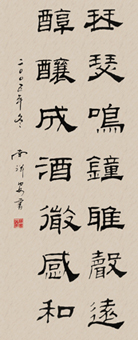 琴瑟鳴鐘雅聲遠
醇釀成酒徹感和
二〇〇五年冬
書